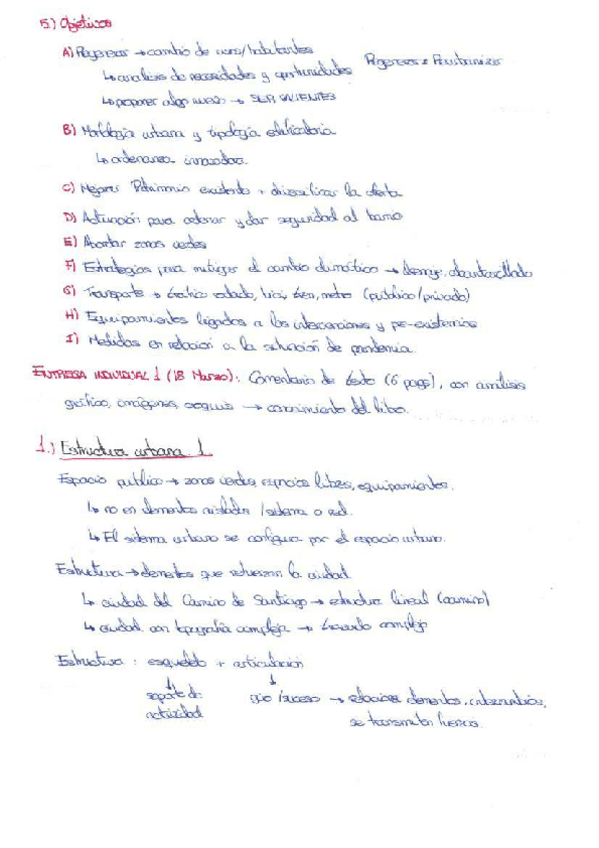 5.) Objetivos
A) Regenerar → cambio de usos/habitantes
Regenerar ≠ Reurbanizar
↳ análisis de necesidades y oportunidades
↳ proponer algo nuevo → SER VALIENTES
B) Morfología urbana y tipología edificatoria
↳ ordenanza innovadora.
C) Mejorar Patrimonio existente + diversificar la oferta
D) Actuación para ordenar y dar seguridad al barrio
E) Abordar zonas verdes
F) Estrategias para mitigar el cambio climático → drenaje, alcantarillado
G) Transporte → tráfico rodado, bici, tren, metro (público/privado)
H) Equipamientos ligados a las intervenciones y pre-existencias
I) Medidas en relación a la situación de pandemia.
ENTREGA INDIVIDUAL 1 (18 Marzo): Comentario de texto (6 pags), con análisis
gráfico, imágenes, croquis → conocimiento del libro.
1.) Estructura urbana 1.
Espacio público → zonas verdes, espacios libres, equipamientos.
↳ no en elementos aislados / sistema o red.
↳ El sistema urbano se configura por el espacio urbano.
Estructura → elementos que refuerzan la ciudad
↳ ciudad del Camino de Santiago → estructura lineal (camino)
↳ ciudad con topografía compleja → trazado complejo
Estructura : esqueleto + articulación
↓ ↓
soporte de actividad
giro /suceso → relaciones elementos, intercambios,
se transmiten fuerzas.